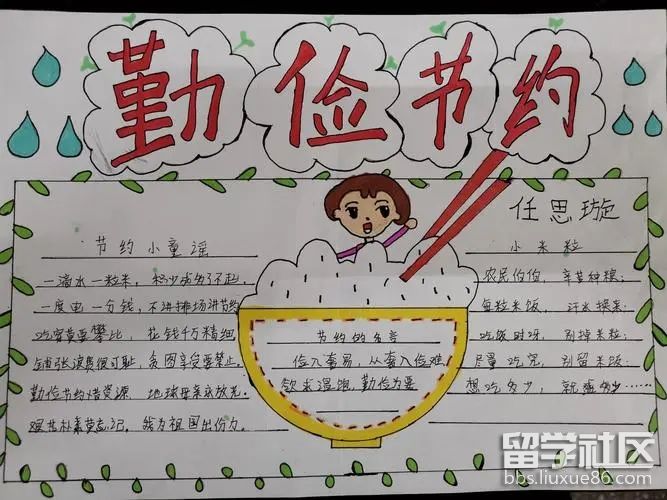 勤俭节约
任思璇
节约小童谣
一滴水一粒米，积少成多了不起，
一度电一分钱，不讲排场讲节约
吃穿莫要攀比，花钱千万精细
铺张浪费很可耻，贪图享受要禁止
勤俭节约惜资源，地球母亲永放光。
艰苦朴素莫忘记，我为祖国出份力。
节约的名言
俭入奢易，从奢入俭难
欲求温饱，勤俭为要
小米粒
农民伯伯，辛苦种粮；
每粒米饭，汗水换来；
吃饭时呀，别掉米粒；
尽量吃完，别留米饭；
想吃多少，就盛多少……
留学社区
bbs.liuxue86.com